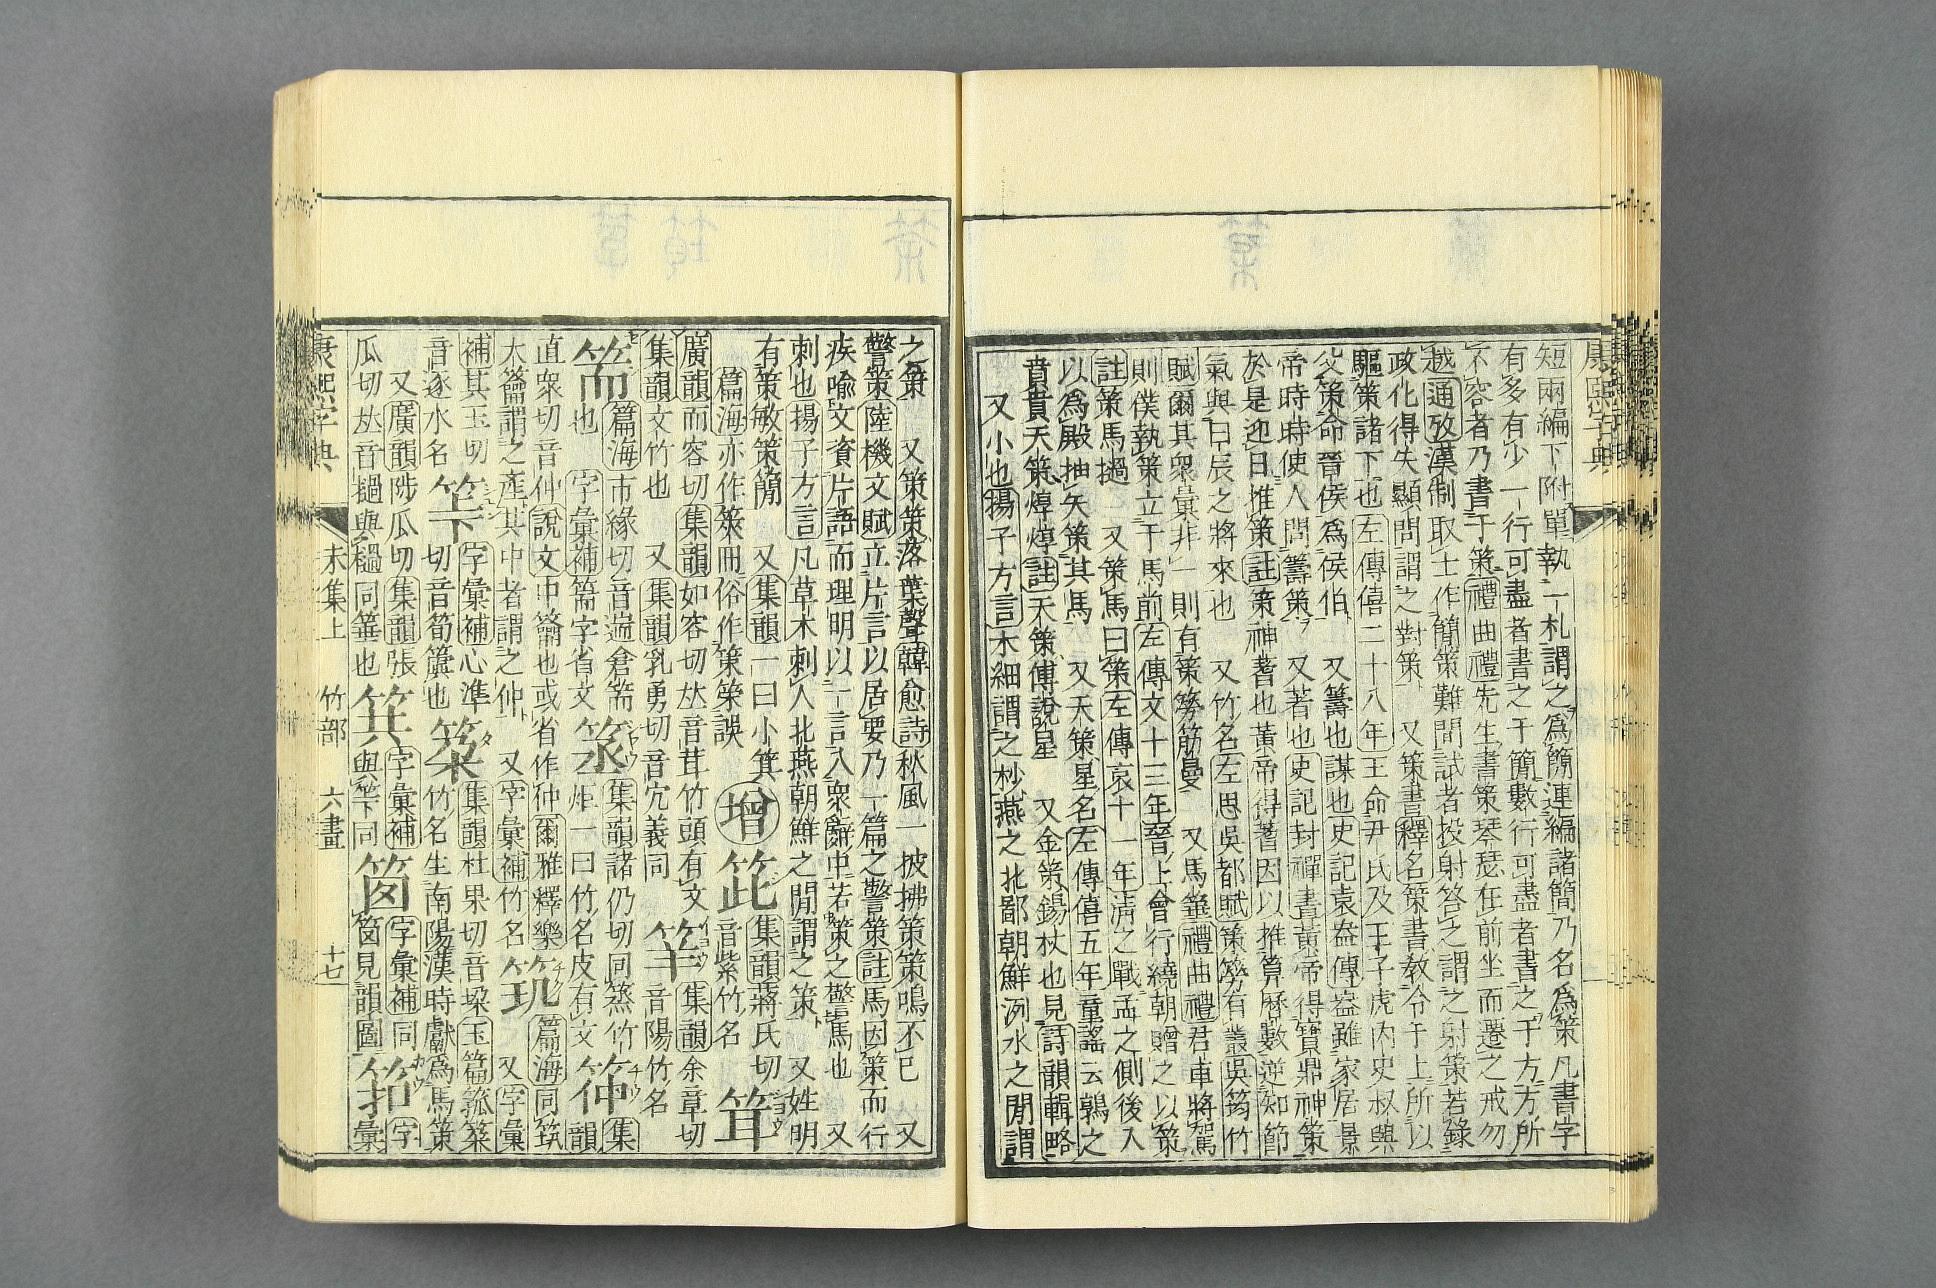 康熙字典
短兩編下附單執一札謂之爲簡連編諸簡乃名爲策凡書字
有多有少一行可盡者書之于簡數行可盡者書之于方方所
不容者乃書于策禮曲禮先生書策琴瑟在前坐而遷之戒勿
越通攷漢制取士作簡策難問試者投射答之謂之射策若錄
政化得失顯問謂之對策 又策書釋名策書敎令于上所以
驅策諸下也左傳僖二十八年王命尹氏及王子虎內史叔興
父策命晉侯爲侯伯 又籌也謀也史記袁盎傳盎雖家居景
帝時時使人問籌策 又蓍也史記封禪書黃帝得寶鼎神策
於是迎日推策註策神蓍也黃帝得蓍因以推算曆數逆知節
氣與日辰之將來也 又竹名左思吳都賦策簩有叢吳筠竹
賦爾其衆彙非一則有策簩筋曼 又馬箠禮曲禮君車將駕
則僕執策立于馬前左傳文十三年晉上會行繞朝贈之以策
註策馬檛 又策馬曰策左傳哀十一年淸之戰孟之側後入
以爲殿抽矢策其馬 又天策星名左傳僖五年童謠云鶉之
賁賁天策焞焞註天策傅說星 又金策錫杖也見詩韻輯略
又小也揚子方言木細謂之杪燕之北鄙朝鮮洌水之閒謂
之策 又策策落葉聲韓愈詩秋風一披拂策策鳴不已 又
警策陸機文賦立片言以居要乃一篇之警策註馬因策而行
疾喩文資片語而理明以一言入衆辭中若策之警馬也 又
刺也揚子方言凡草木刺人北燕朝鮮之閒謂之策 又姓明
有策敏策簡 又集韻一曰小箕 增 集韻蔣氏切
篇海亦作筞冊俗作筴筞誤 音紫竹名
廣韻而容切集韻如容切𠀤音茸竹頭有文 集韻余章切
集韻文竹也 又集韻乳勇切音宂義同 音陽竹名
篇海市緣切音遄倉 集韻諸仍切同蒸竹 筗 集
也 字彙補 字省文 炬一曰竹名皮有文 韻
直衆切音仲說文中籥也或省作仲爾雅釋樂 篇海同筑
大籥謂之產其中者謂之仲 又字彙補竹名 又字彙
補其玉切 字彙補心準 集韻杜果切音垛玉篇箛
音逐水名 切音筍簨也 竹名生南陽漢時獻爲馬策
又廣韻陟瓜切集韻張 字彙補 字彙補同 字
瓜切𠀤音檛與檛同箠也 與 同 見韻圖 彙
康熙字典 未集上 竹部 六畫 十七